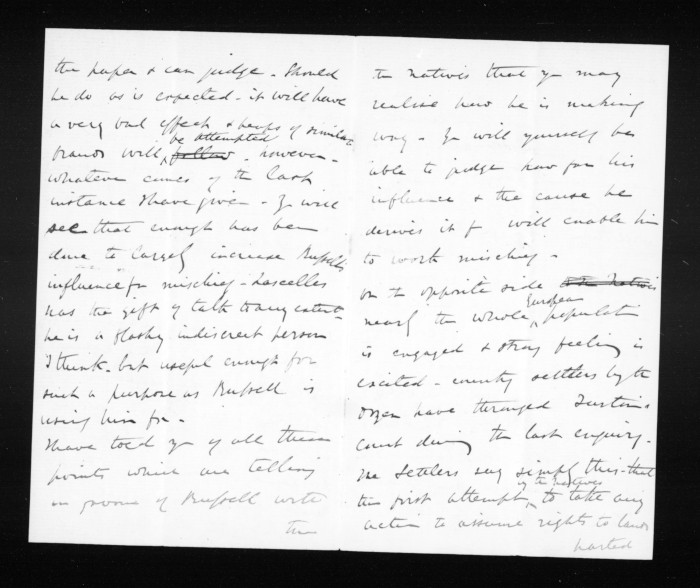 the paper & can judge - Should
he do as is expected - it will have
a very bad effect & heaps of similar
be attempted
frauds will follow - however -
whatever comes of the last
instance I have given - Ye will
see that enough has been
done to largely increase Russell's
influence for mischief - Lascelles
has the gift of talk to any extent -
he is a flashy indiscreet person
I think - but useful enough for
such a purpose as Russell is
using him for -
I have told ye of all these
points which are telling
in favour of Russell with
the
the Natives that ye may
realise how he is making
way - Ye will yourself be
able to judge how far his
influence & the cause he
derives it from will enable him
to work mischief -
On the opposite side of the Natives
European
nearly the whole population
is engaged & strong feeling is
excited - country settlers by the
dozen have thronged Turton's
court during the last enquiry -
The Settlers say simply this - that
of the natives
the first attempt to take any
action to assume rights to lands
parted